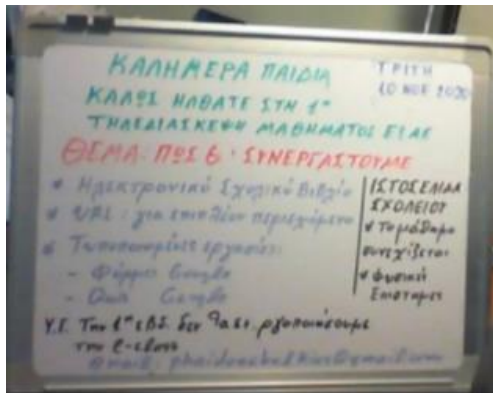 ΚΑΛΗΜΕΡΑ ΠΑΙΔΙΑ
ΤΡΙΤΗ
10 ΝΟΕ 2020
ΚΑΛΩΣ ΗΛΘΑΤΕ ΣΤΗ 1η
ΤΗΛΕΔΙΑΣΚΕΨΗ ΜΑΘΗΜΑΤΟΣ
ΘΕΜΑ: ΠΩΣ ΣΥΝΕΡΓΑΣΤΟΥΜΕ
* Ηλεκτρονικό Σχολικό Βιβλίο
* URL: για επιπλέον περιεχόμενο
* Τυποποιημένες εργασίες:
- Φόρμες Google
- Google
ΙΣΤΟΣΕΛΙΔΑ
ΣΧΟΛΕΙΟΥ
* Το μάθημα
συνεχίζεται
* Φυσικές
Επιστήμες
Την 1η εβδ. δεν
την e-class